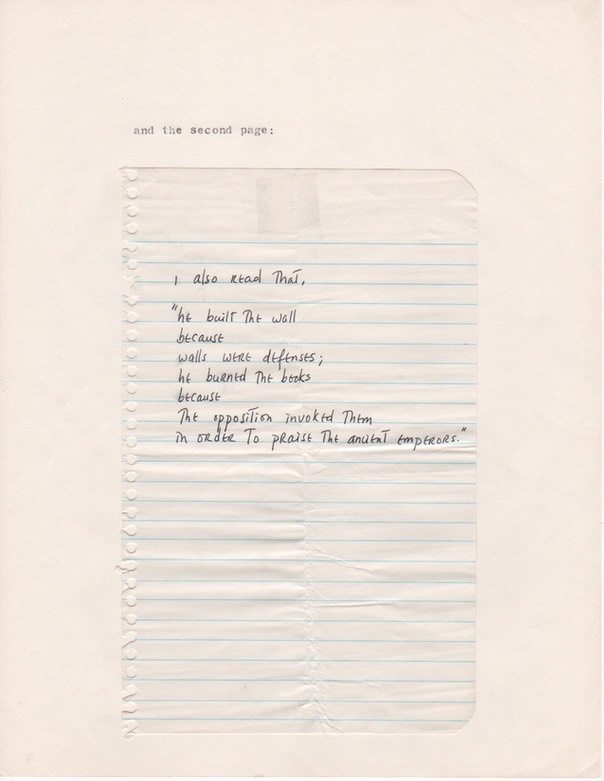 and the second page:
I also read that,
"he built the wall
because
walls were defenses;
he burned the books
because
the opposition invoked them
in order to praise the ancient emperors."